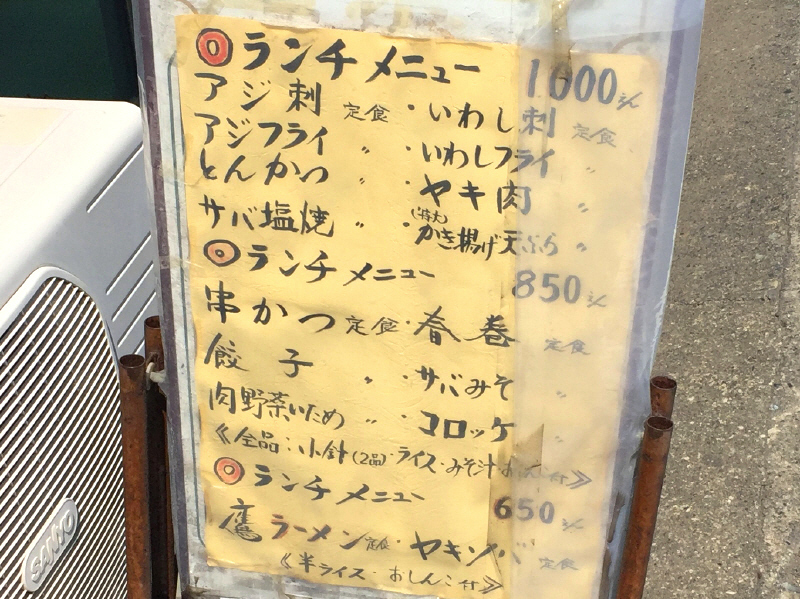 ◎ランチメニュー 1000えん
アジ刺 定食 ・いわし刺 定食
アジフライ 〃 ・いわしフライ 〃
とんかつ 〃 ・ヤキ肉 〃
サバ塩焼 〃 ・(特大)かき揚げ天ぷら 〃
◎ランチメニュー 850えん
串かつ 定食 ・春巻 定食
餃子 〃 ・サバみそ 〃
肉野菜いため 〃 ・コロッケ 〃
《全品:小針(2品)・ライス・みそ汁・おしんこ付》
◎ランチメニュー 650えん
鷹ラーメン 定食 ・ヤキソバ 定食
《半ライス・おしんこ付》
SANYO